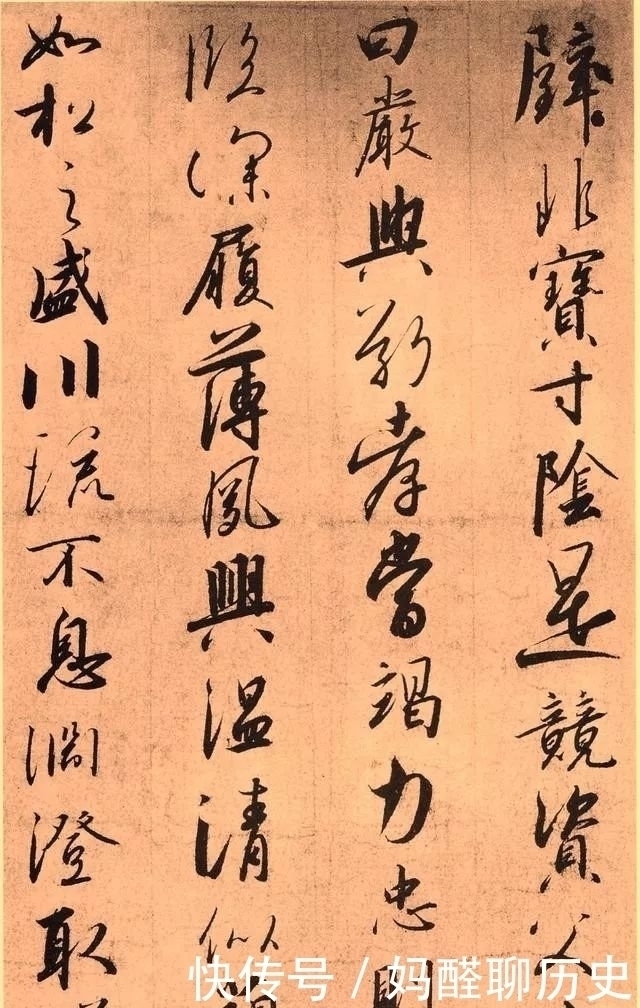 璧非寶寸陰是競資父
曰嚴與敬孝當竭力忠
臨深履薄夙興温清似
如松之盛川流不息淵澄取
快传号 / 妈醛聊历史